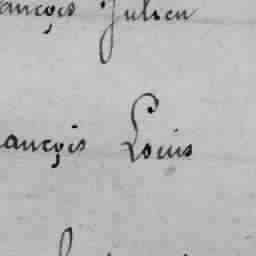 ançois Julien
ançois Louis